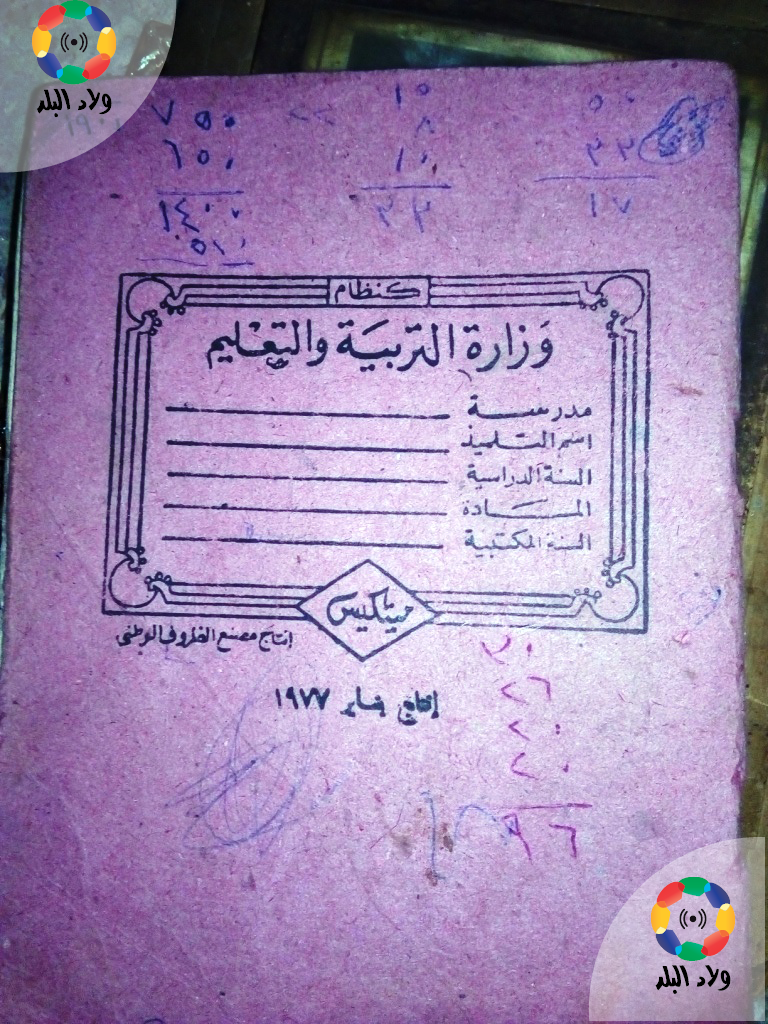 ولاد البلد
٧٥٠
٦٥٠
١٤٠٠
٥١٠
١٥
٨
١٠
٣٣
٥٠
٣٣
١٧
كنظام
وَزارة التربيَة والتعْليم
مدرسة
اسم التلميذ
السنة الدراسية
المادة
السنة المكتبية
ميتكيس
إنتاج مصنع الظروف الوطنى
إنتاج يناير ١٩٧٧
٣٠
٢٦
٢٠
٢٠
٩٦
ولاد البلد